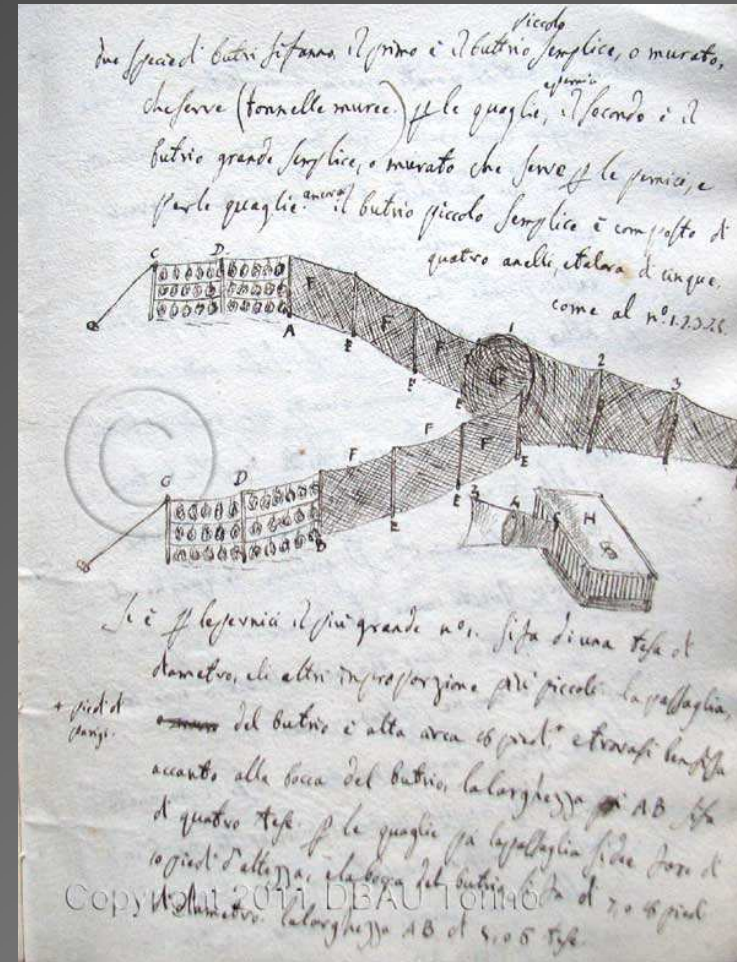 piccolo
due specie di butri si fanno. il primo è il buttrio semplice, o murato,
che serve (tonnelle muree.) p le quaglie, e pernici il secondo è il
butrio grande semplice, o murato che serve p le pernici, e
per le quaglie. ancora il butrio piccolo semplice è composto di
quatro anelli, e talora di cinque,
come al nº. 1.2.3.
C D F A E F E F E F 1 G E 2 3
F F F E
C D F B E E 3 4 5 H
Se è p le pernici il più grande nº 1. si fa di una tesa di
diametro, gli altri in proporzione più piccoli. la passaglia,
+ piedi di
parigi.
del butrio è alta circa piedi + e trovasi
accanto alla bocca del butrio, la larghezza AB si fa
di quatro tese. p le quaglie la passaglia si dee fare di
10 piedi d'altezza, e la bocca del butrio si fa di 7, o 8 piedi
di diametro. la larghezza AB di 5, o 6 tese.
Copyright 2011 DBAU Torino